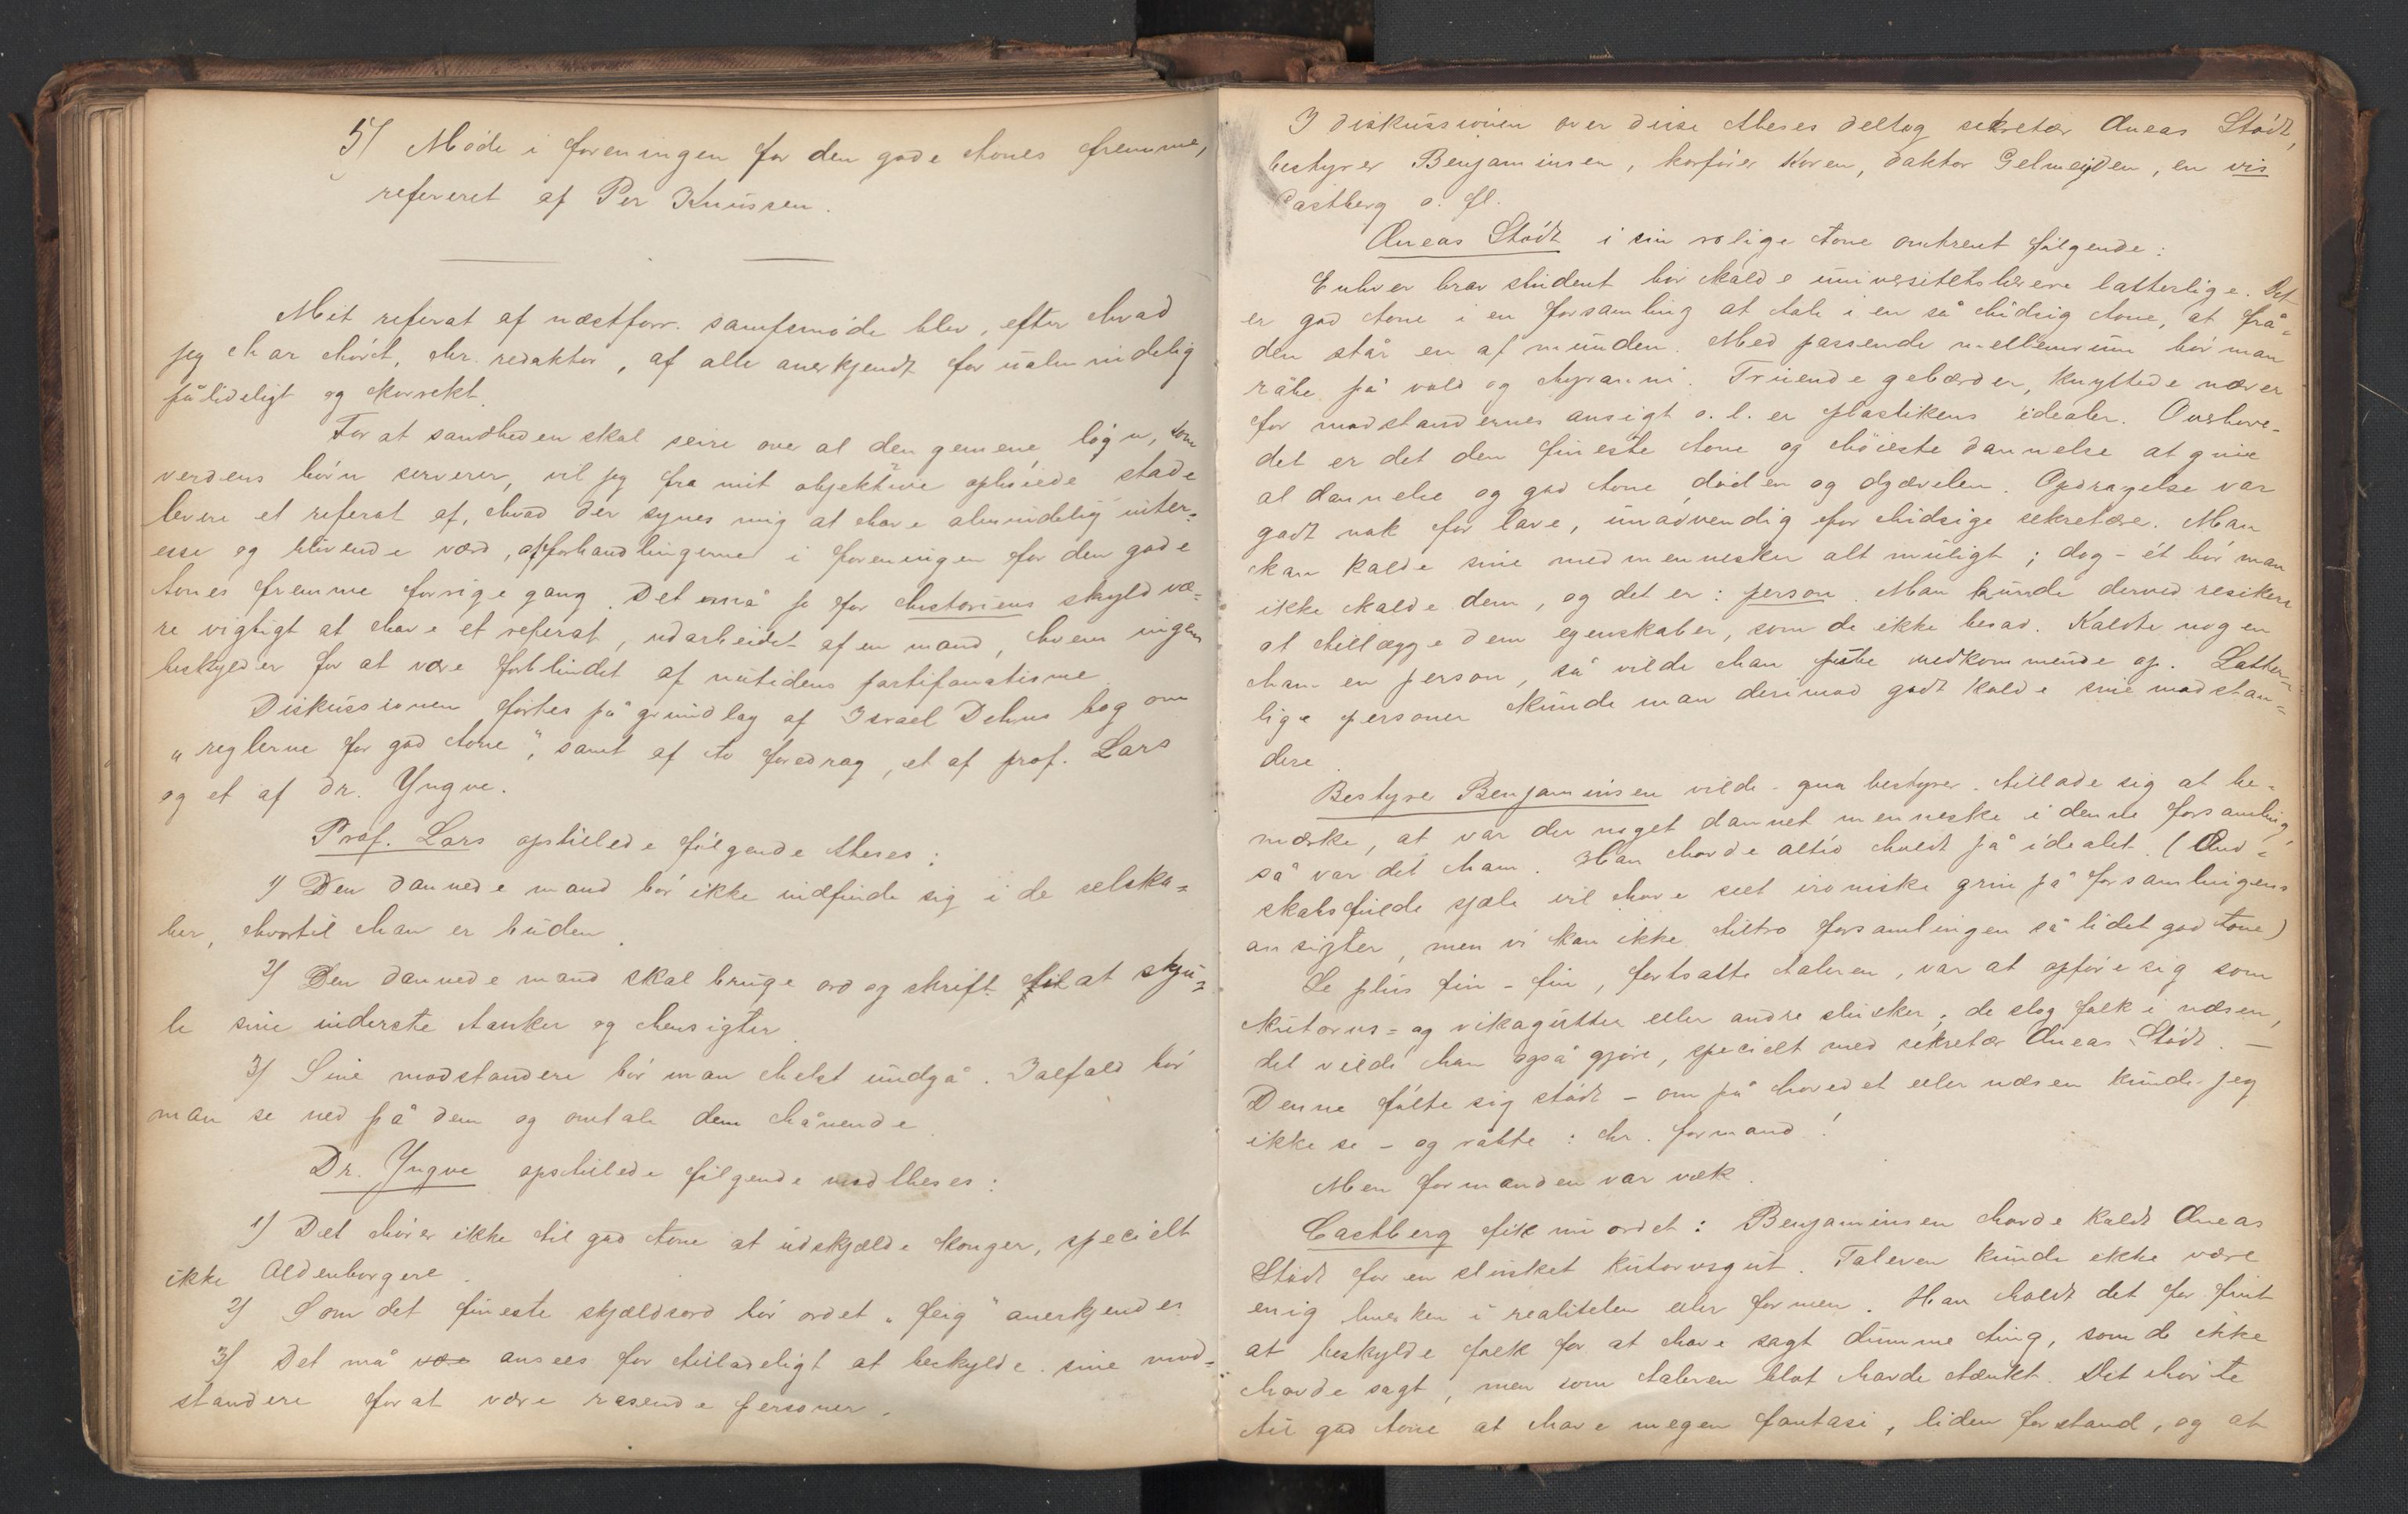 5/ Møde i foreningen for den gode tones fremme,
refereret af Per Knussen.
Mit referat af næstforr. samfsmøde blev, efter hvad
jeg har hørt, hr. redaktør, af alle anerkjendt for ualmindelig
pålideligt og korrekt.
For at sandheden skal seire over al den gemene løgn, som
verdens børn serverer, vil jeg fra mit objektive ophøiede stade
levere et referat af, hvad der synes mig at have almindelig inter-
esse og blivende værd, af forhandlingerne i foreningen for den gode
tones fremme forrige gang. Det må jo for historiens skyld væ-
re vigtigt at have et referat, udarbeidet af en mand, hvem ingen
beskylder for at være forblindet af nutidens partifanatisme.
Diskussionen førtes på grundlag af Israel Dehns bog om
"reglerne for god tone", samt af to foredrag, et af prof. Lars
og et af dr. Yngve.
Prof. Lars opstillede følgende theses:
1/ Den dannede mand bør ikke indfinde sig i de selska-
ber, hvortil han er buden.
2/ Den dannede mand skal bruge ord og skrift til at skju-
le sine inderste tanker og hensigter.
3/ Sine modstandere bør man helst undgå. Ialfald bør
man se ned på dem og omtale dem hånende.
Dr. Yngve opstillede følgende modtheses:
1/ Det hører ikke til god tone at udskjælde konger, specielt
ikke Oldenborgere.
2/ Som det fineste skjældsord bør ordet "feig" anerkjendes.
3/ Det må væe ansees for tilladeligt at beskylde sine mod-
standere for at være rasende personer.
I diskussionen over disse theses deltog sekretær Æneas Stødt,
bestyrer Benjaminsen, korfører Koren, doktor Gelmeyden, en vis
Castberg o. fl.
Æneas Stødt i sin rolige tone omtrent følgende:
Enhver brav student bør kalde universitetslærere latterlige. Det
er god tone i en forsamling at tale i en så hidsig tone, at frå-
den står en af munden. Med passende mellemrum bør man
råbe på vold og tyranni. Truende gebærder, knyttede næver
for modstandernes ansigt o. l. er plastikens idealer. Overhove-
det er det den fineste tone og høieste dannelse at give
al dannelse og god tone døden og djævelen. Opdragelse var
godt nok for lave, unødvendig for hidsige sekretære. Man
kan kalde sine medmennesker alt muligt; dog - ét bør man
ikke kalde dem, og det er: person. Man kunde derved resikere
at tillægge dem egenskaber, som de ikke besad. Kaldte nogen
ham en person, så vilde han pibe vedkommende op. Latter-
lige personer kunde man derimod godt kalde sine modstan-
dere.
Bestyrer Benjaminsen vilde - qua bestyrer - tillade sig at be-
mærke, at var der noget dannet menneske i denne forsamling,
så var det ham. Han havde altid holdt på idealet. (Ond-
skabsfulde sjæle vil have seet ironiske grin på forsamlingens
ansigter, men vi kan ikke tiltro forsamlingen så lidet god tone)
Le plus fin - fin, fortsatte taleren, var at opføre sig som
kutorvs- og vikagutter eller andre slusker; de slog folk i næsen,
det vilde han også gjøre, specielt med sekretær Æneas Stødt. —
Denne følte sig stødt - om på hovedet eller næsen kunde jeg
ikke se - og råbte: hr. formand!
Men formanden var væk.
Castberg fik nu ordet: Benjaminsen havde kaldt Æneas
Stødt for en slusket kutorvsgut. Taleren kunde ikke være
enig hverken i realiteten eller formen. Han holdt det for fint
at beskylde folk for at have sagt dumme ting, som de ikke
havde sagt, men som taleren blot havde tænkt. Det hørte
til god tone at have megen fantasi, liden forstand, og at